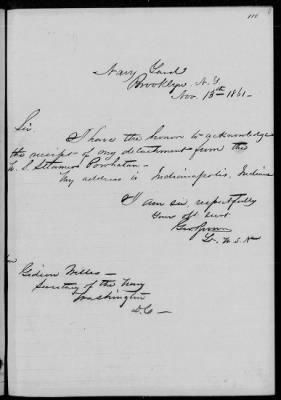 Navy Yard
Brooklyn N.Y.
Nov. 13th 1861 —
Sir.
I have the honor to acknowledge
the receipt of my detachment from the
U. S. Steamer Powhatan —
My address is Indianapolis. Indiana
I am sir, respectfully
Your obt servt
Lt. U. S. N
Gideon Welles —
Secretary of the Navy
Washington
D.C —